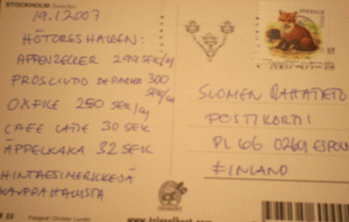 STOCKHOLM Sweden
19.1.2007
HÖTORGSHALLEN:
APPENZELLER 299 SEK/kg
PROSCIUTTO DI PARMA 300
SEK/kg
OXFILE 250 SEK/kg
CAFE LATTE 30 SEK
ÄPPELKAKA 32 SEK
HINTAESIMERKKEJÄ
KAUPPAHALLISTA
SVERIGE
SUOMEN RAHATIETO
POSTIKORTTI
PL 66 02601 ESPOO
FINLAND